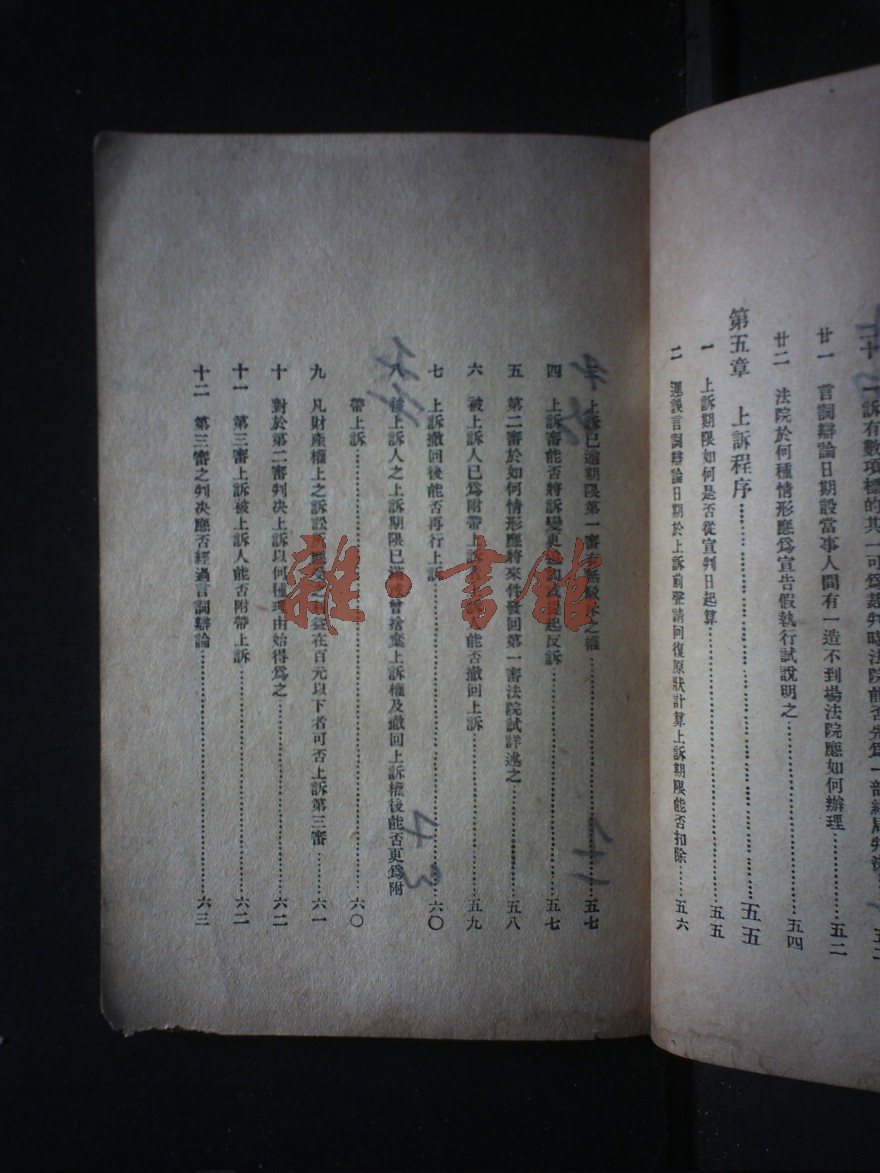 二十 一訴有數項標的其一可爲裁判時法院能否先爲一部終局判決……五二
廿一 言詞辯論日期設當事人間有一造不到場法院應如何辦理……五二
廿二 法院於何種情形應爲宣告假執行試說明之……五四
第五章 上訴程序……五五
一 上訴期限如何是否從宣判日起算……五五
二 遲誤言詞辯論日期於上訴前聲請回復原狀計算上訴期限能否扣除……五六
上訴已逾期限第一審有無駁斥之權……五七
四 上訴審能否將訴變更追加或提起反訴……五七
五 第二審於如何情形應將來件發回第一審法院試詳述之……五八
六 被上訴人已爲附帶上訴上訴人能否撤回上訴……五九
七 上訴撤回後能否再行上訴……六〇
八 被上訴人之上訴期限已滿或曾捨棄上訴權及撤回上訴權後能否更爲附
帶上訴……六〇
九 凡財產權上之訴訟所受之利益在百元以下者可否上訴第三審……六一
十 對於第二審判決上訴以何種理由始得爲之……六二
十一 第三審上訴被上訴人能否附帶上訴……六二
十二 第三審之判決應否經過言詞辯論……六三
雜·書館